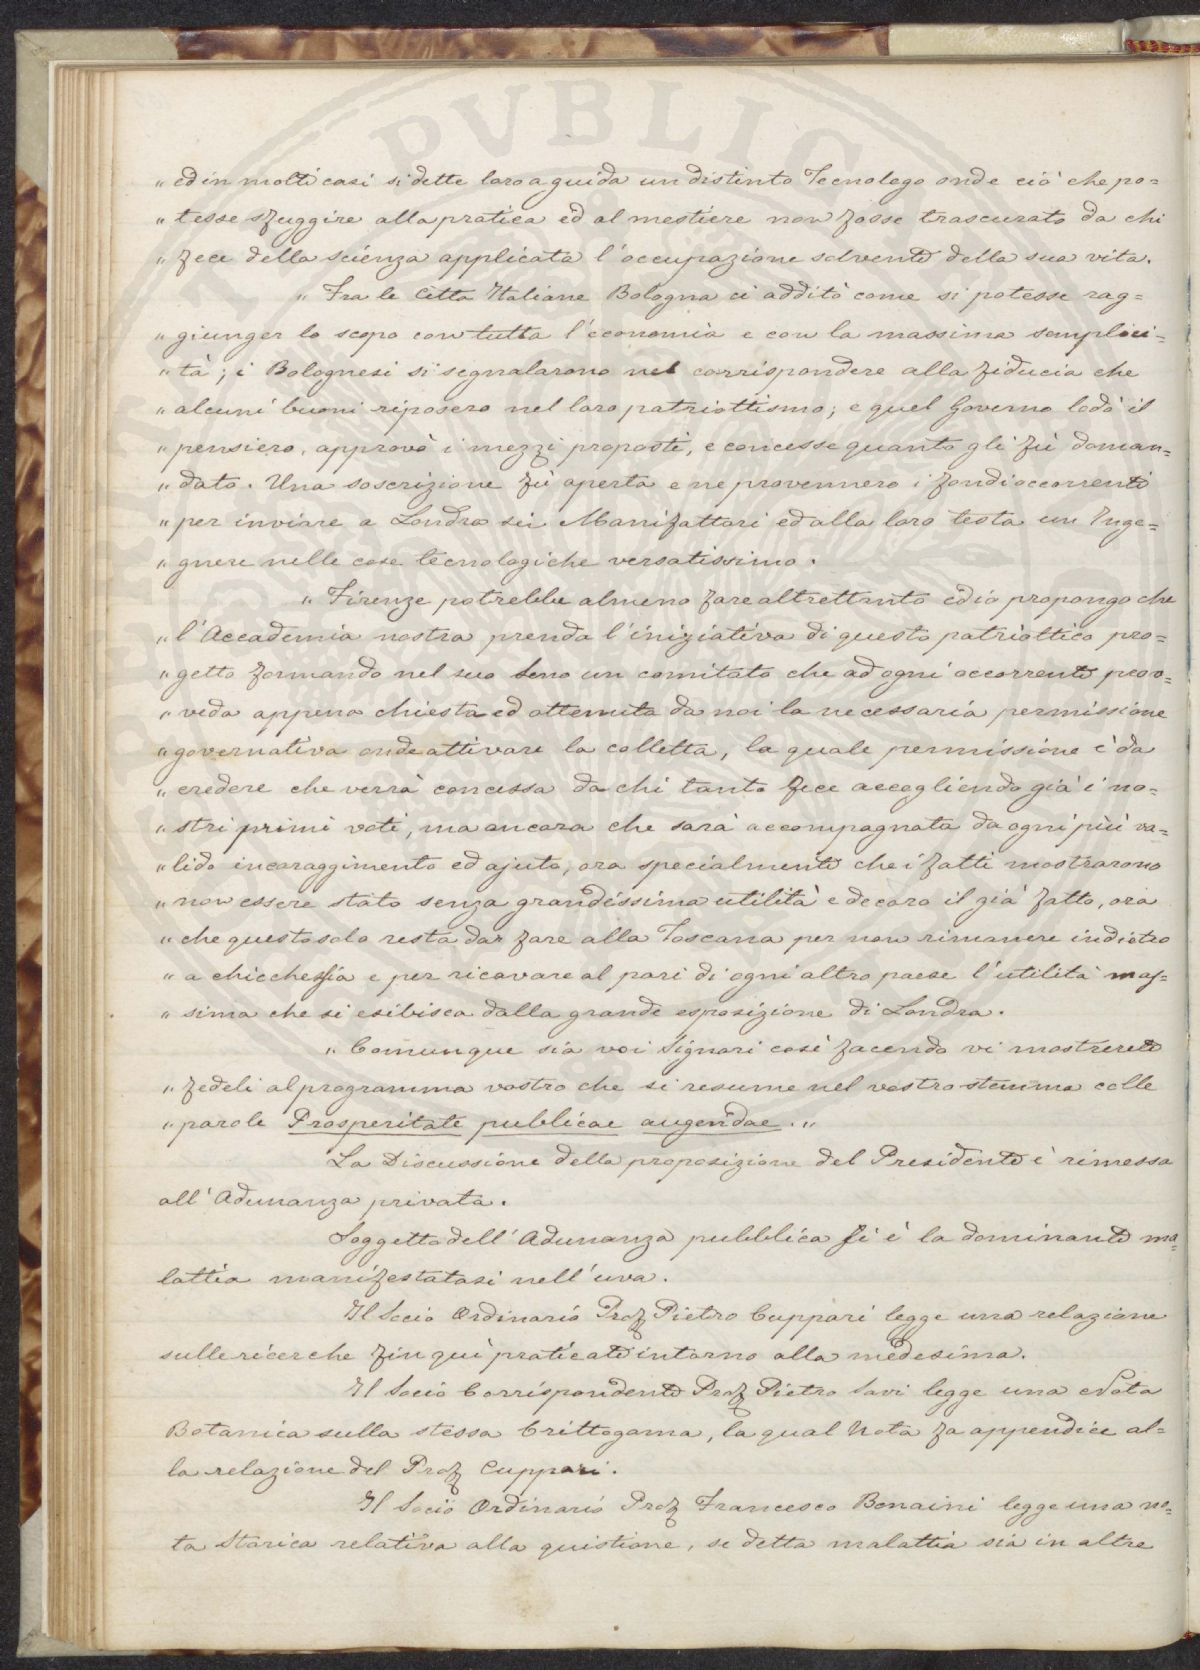 „ ed in molti casi si dette loro a guida un distinto Tecnologo onde ciò che po=
„ tesse sfuggire alla pratica ed al mestiere non fosse trascurato da chi
„ fece della scienza applicata l'occupazione solvente della sua vita.
„ Fra le Città Italiane Bologna ci additò come si potesse rag=
„ giunger lo scopo con tutta l'economia e con la massima semplici=
„ tà; i Bolognesi si segnalarono nel corrispondere alla fiducia che
„ alcuni buoni riposero nel loro patriottismo; e quel Governo lodò il
„ pensiero, approvò i mezzi proposti, e concesse quanto gli fù doman=
„ dato. Una soscrizione fù aperta e ne provennero i fondi occorrenti
„ per inviare a Londra sei Manifattori ed alla loro testa un Inge=
„ gnere nelle cose tecnologiche versatissimo.
„ Firenze potrebbe almeno fare altrettanto ed io propongo che
„ l'Accademia nostra prenda l'iniziativa di questo patriottico pro=
„ getto formando nel suo seno un comitato che ad ogni occorrente prov=
„ veda appena chiesta ed ottenuta da noi la necessaria permissione
„ governativa onde attivare la colletta, la quale permissione è da
„ credere che verrà concessa da chi tanto fece accogliendo già i no=
„ stri primi voti, ma ancora che sarà accompagnata da ogni più va=
„ lido incoraggimento ed ajuto, ora specialmente che i fatti mostrarono
„ non essere stato senza grandissima utilità e decoro il già fatto, ora
„ che questo solo resta da fare alla Toscana per non rimanere indietro
„ a chicchessia e per ricavare al pari di ogni altro paese l'utilità mas=
„ sima che si esibisca dalla grande esposizione di Londra.
„ Comunque sia voi Signori così facendo vi mostrerete
„ fedeli al programma vostro che si resume nel vostro stemma colle
„ parole Prosperitate publicae augendae. „
La Discussione della proposizione del Presidente è rimessa
all'Adunanza privata.
Soggetto dell'Adunanza pubblica si è la dominante ma=
lattia manifestatasi nell'uva.
Il Socio Ordinario Prof Pietro Cuppari legge una relazione
sulle ricerche fin quì praticate intorno alla medesima.
Il Socio Corrispondente Prof Pietro Savi legge una Nota
Botanica sulla stessa Crittogama, la qual Nota fa appendice al=
la relazione del Prof Cuppari.
Il Socio Ordinario Prof Francesco Bonaini legge una no=
ta Storica relativa alla quistione, se detta malattia sia in altre
PVBLICA